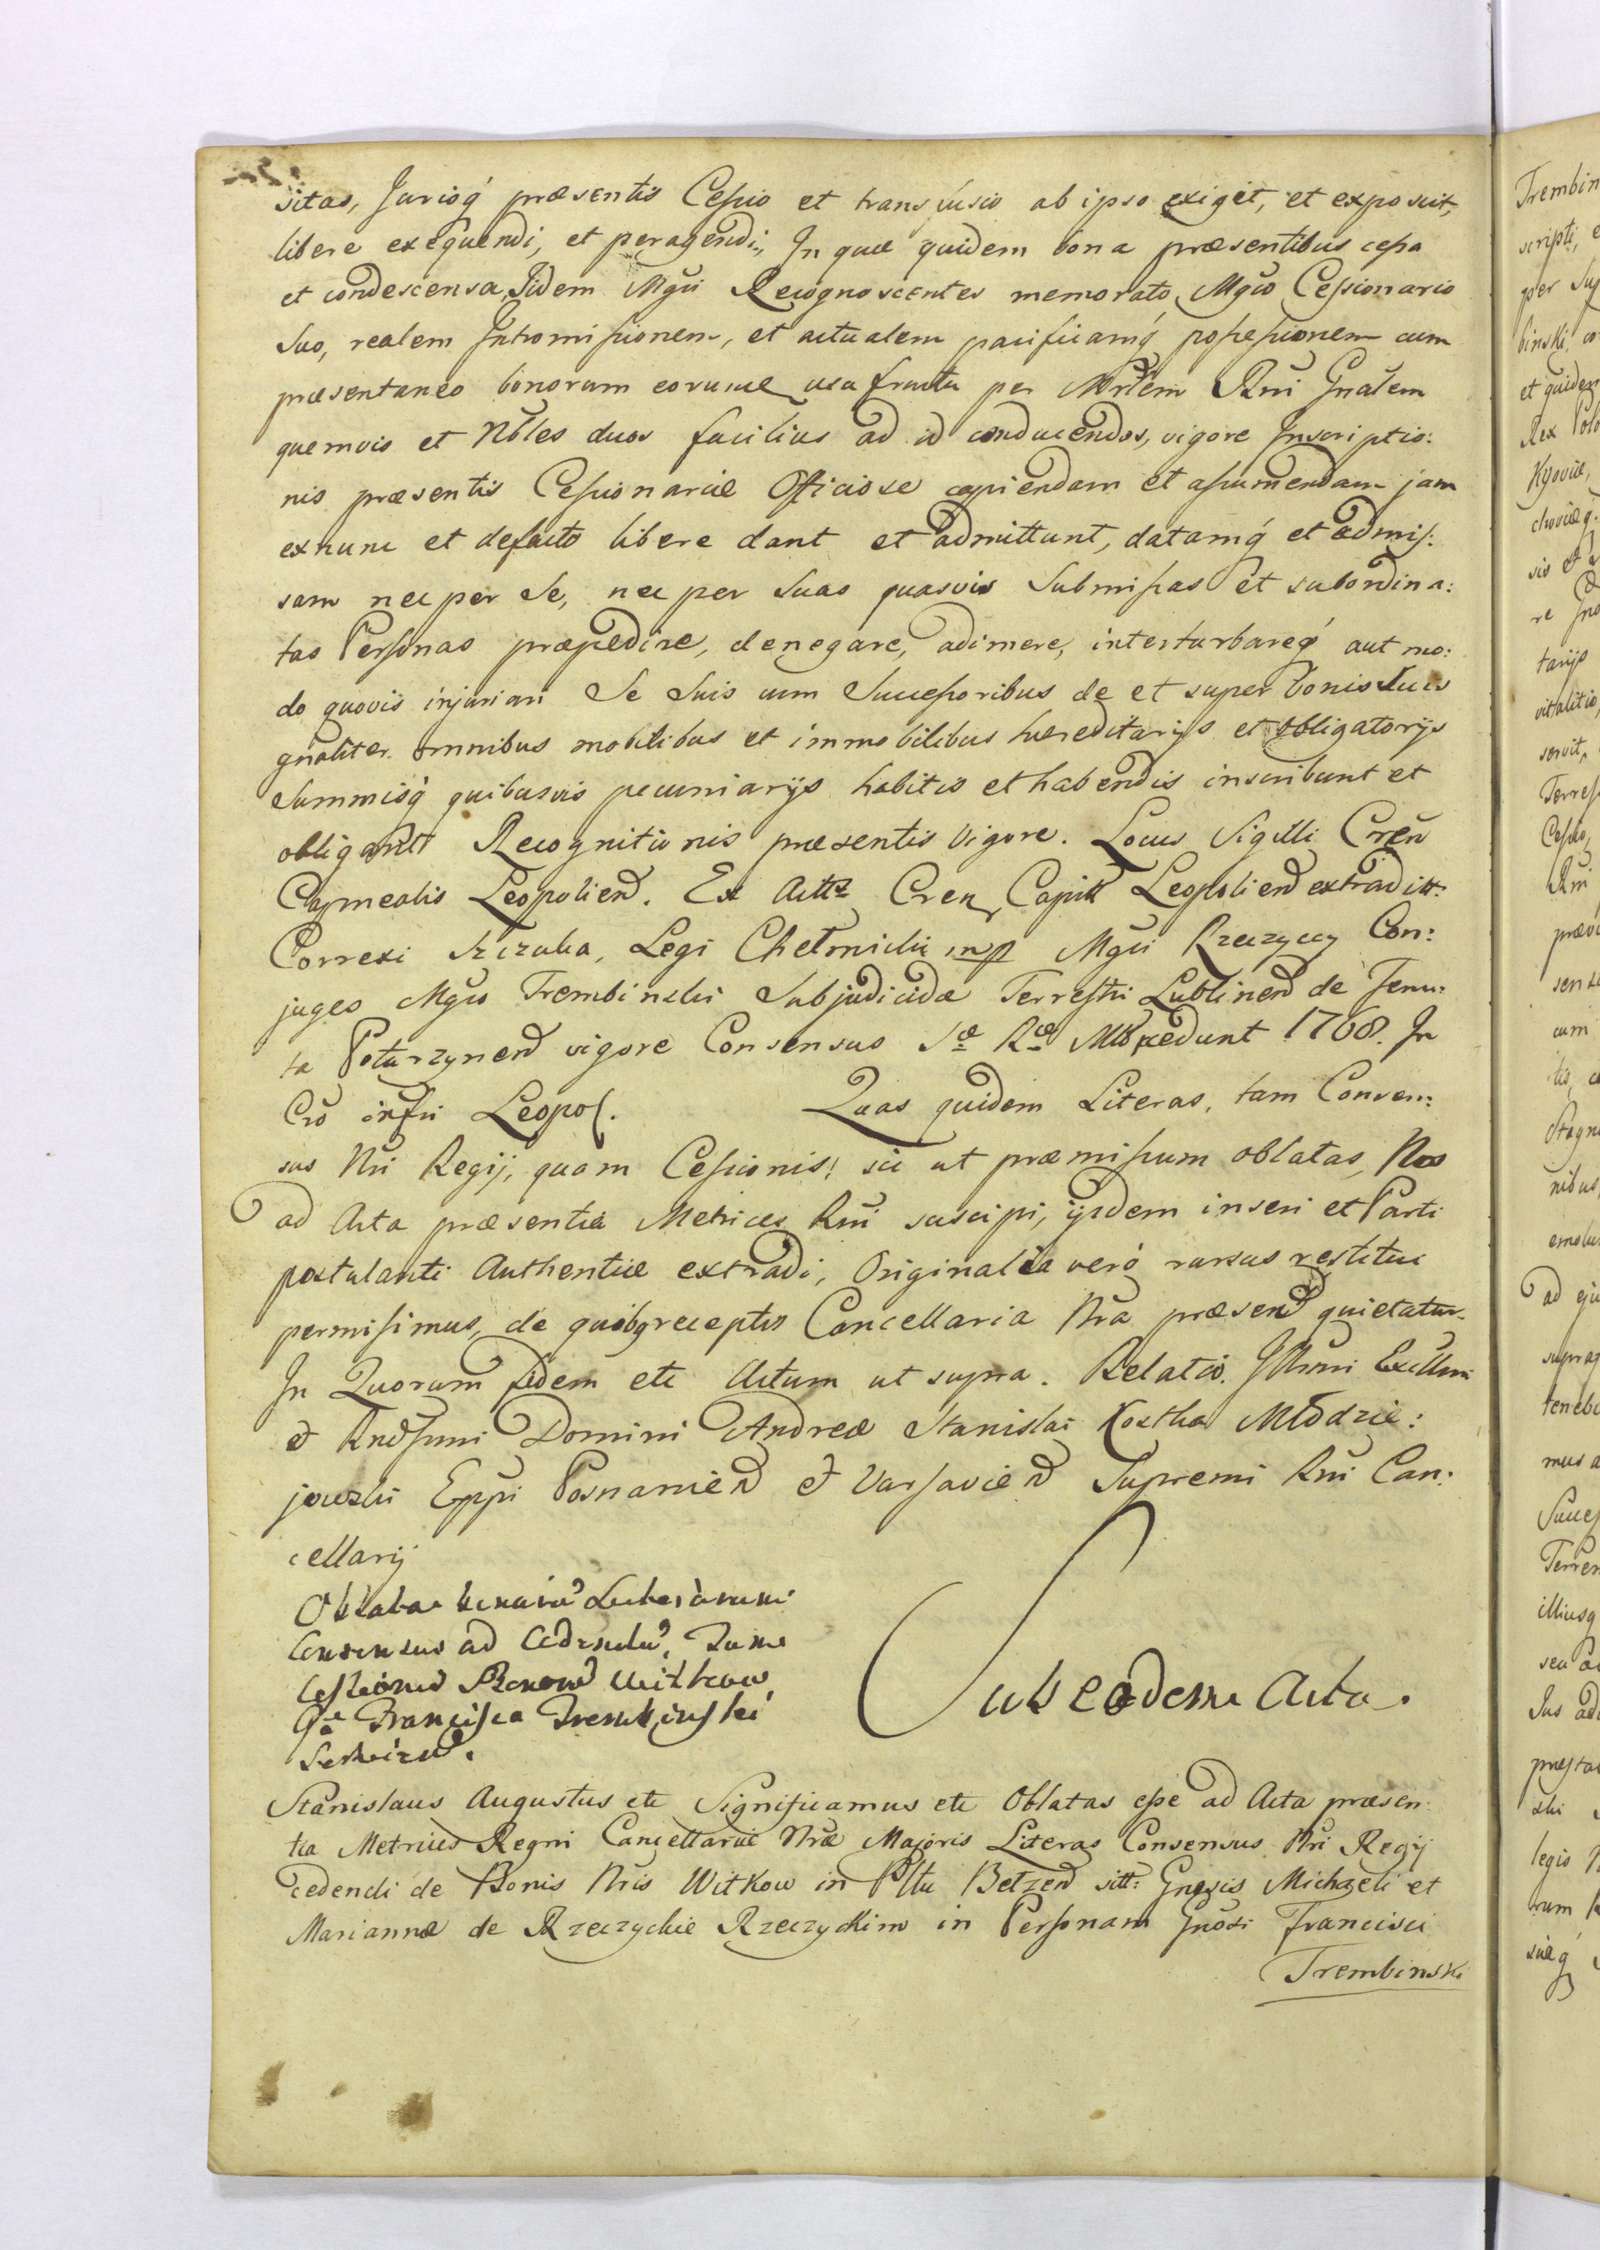 sitas, Jurisq́ præsentis Cessio et transfusio ab ipso exiget, et exposcit,
libere exequendi, et peragendi, In quæ quidem bona præsentibus cessa
et condescensa, Iidem Mgci Recognoscentes memorato Mgco Cessionario
Suo, realem Intromissionem, et actualem pacificamq́ possessionem cum
præsentaneo bonorum eorum usufructu per Mrlem Rni Gnalem
quemvis et Nobles duos facilius ad id conducendos, vigore Inscriptio:
nis præsentis Cessionariæ Officiose capiendam et assumendam jam
exnunc et defacto libere dant et admittunt, datamq́ et admis:
sam nec per Se, nec per Suas quasvis Submissas et subordina:
tas Personas præpedire, denegare, adimere, interturbareq́ aut mo:
do quovis injuriari Se Suis cum Successoribus de et super bonis Suis
gnaliter omnibus mobilibus et immobilibus hæreditarijs et obligatorijs
Summisq́ quibusvis pecuniarijs habitis et habendis inscribunt et
obligant Recognitionis præsentis vigore. Locus Sigilli Cren
Capnealis Leopolien. Ex Actis Cren, Capit Leopolien extradit:
Correxi Szczuka, Legi Chełmicki mp Mgci Rzeczyccy Con:
juges Mgco Trembinski Subjudicidæ Terrestri Lublinen de Tenu:
ta Poturzynen vigore Consensus Sæ Ræ Mttis cedunt 1768. In
Cro infri Leopol. Quas quidem Literas, tam Consen:
sus Nri Regij, quam Cessionis! sic ut præmissum oblatas, Nos
ad Acta præsentia Metrices Rni suscipi, ijsdem inseri et Parti
postulanti Authentice extradi, Originalia veró rursus restitui
permisimus, de quibq receptis Cancellaria Nra præsen quietatur.
In Quorum fidem etc Actum ut supra. Relatio. Illmi Excllmi
et Rndssimi Domini Andreæ Stanislai Kostka Młodzie:
jowski Eppi Posnanien et Varsavien Supremi Rni Can:
cellarij
Oblata binaru Literarum
Consensus ad Cedendu, Tum
Cessionis Bonoru Witkow
Gso Francisco Trembinski
Serviens.
Sub eadem Acta.
Stanislaus Augustus etc Significamus etc Oblatas esse ad Acta præsen:
tia Metrices Regni Cancellariæ Nræ Majoris Literas Consensus Nri Regij
cedendi de Bonis Nris Witkow in Pttu Bełzen sitt: Gnosis Michaeli et
Mariannæ de Rzeczyckie Rzeczyckim in Personam Gnosi Francisci
Trembinski